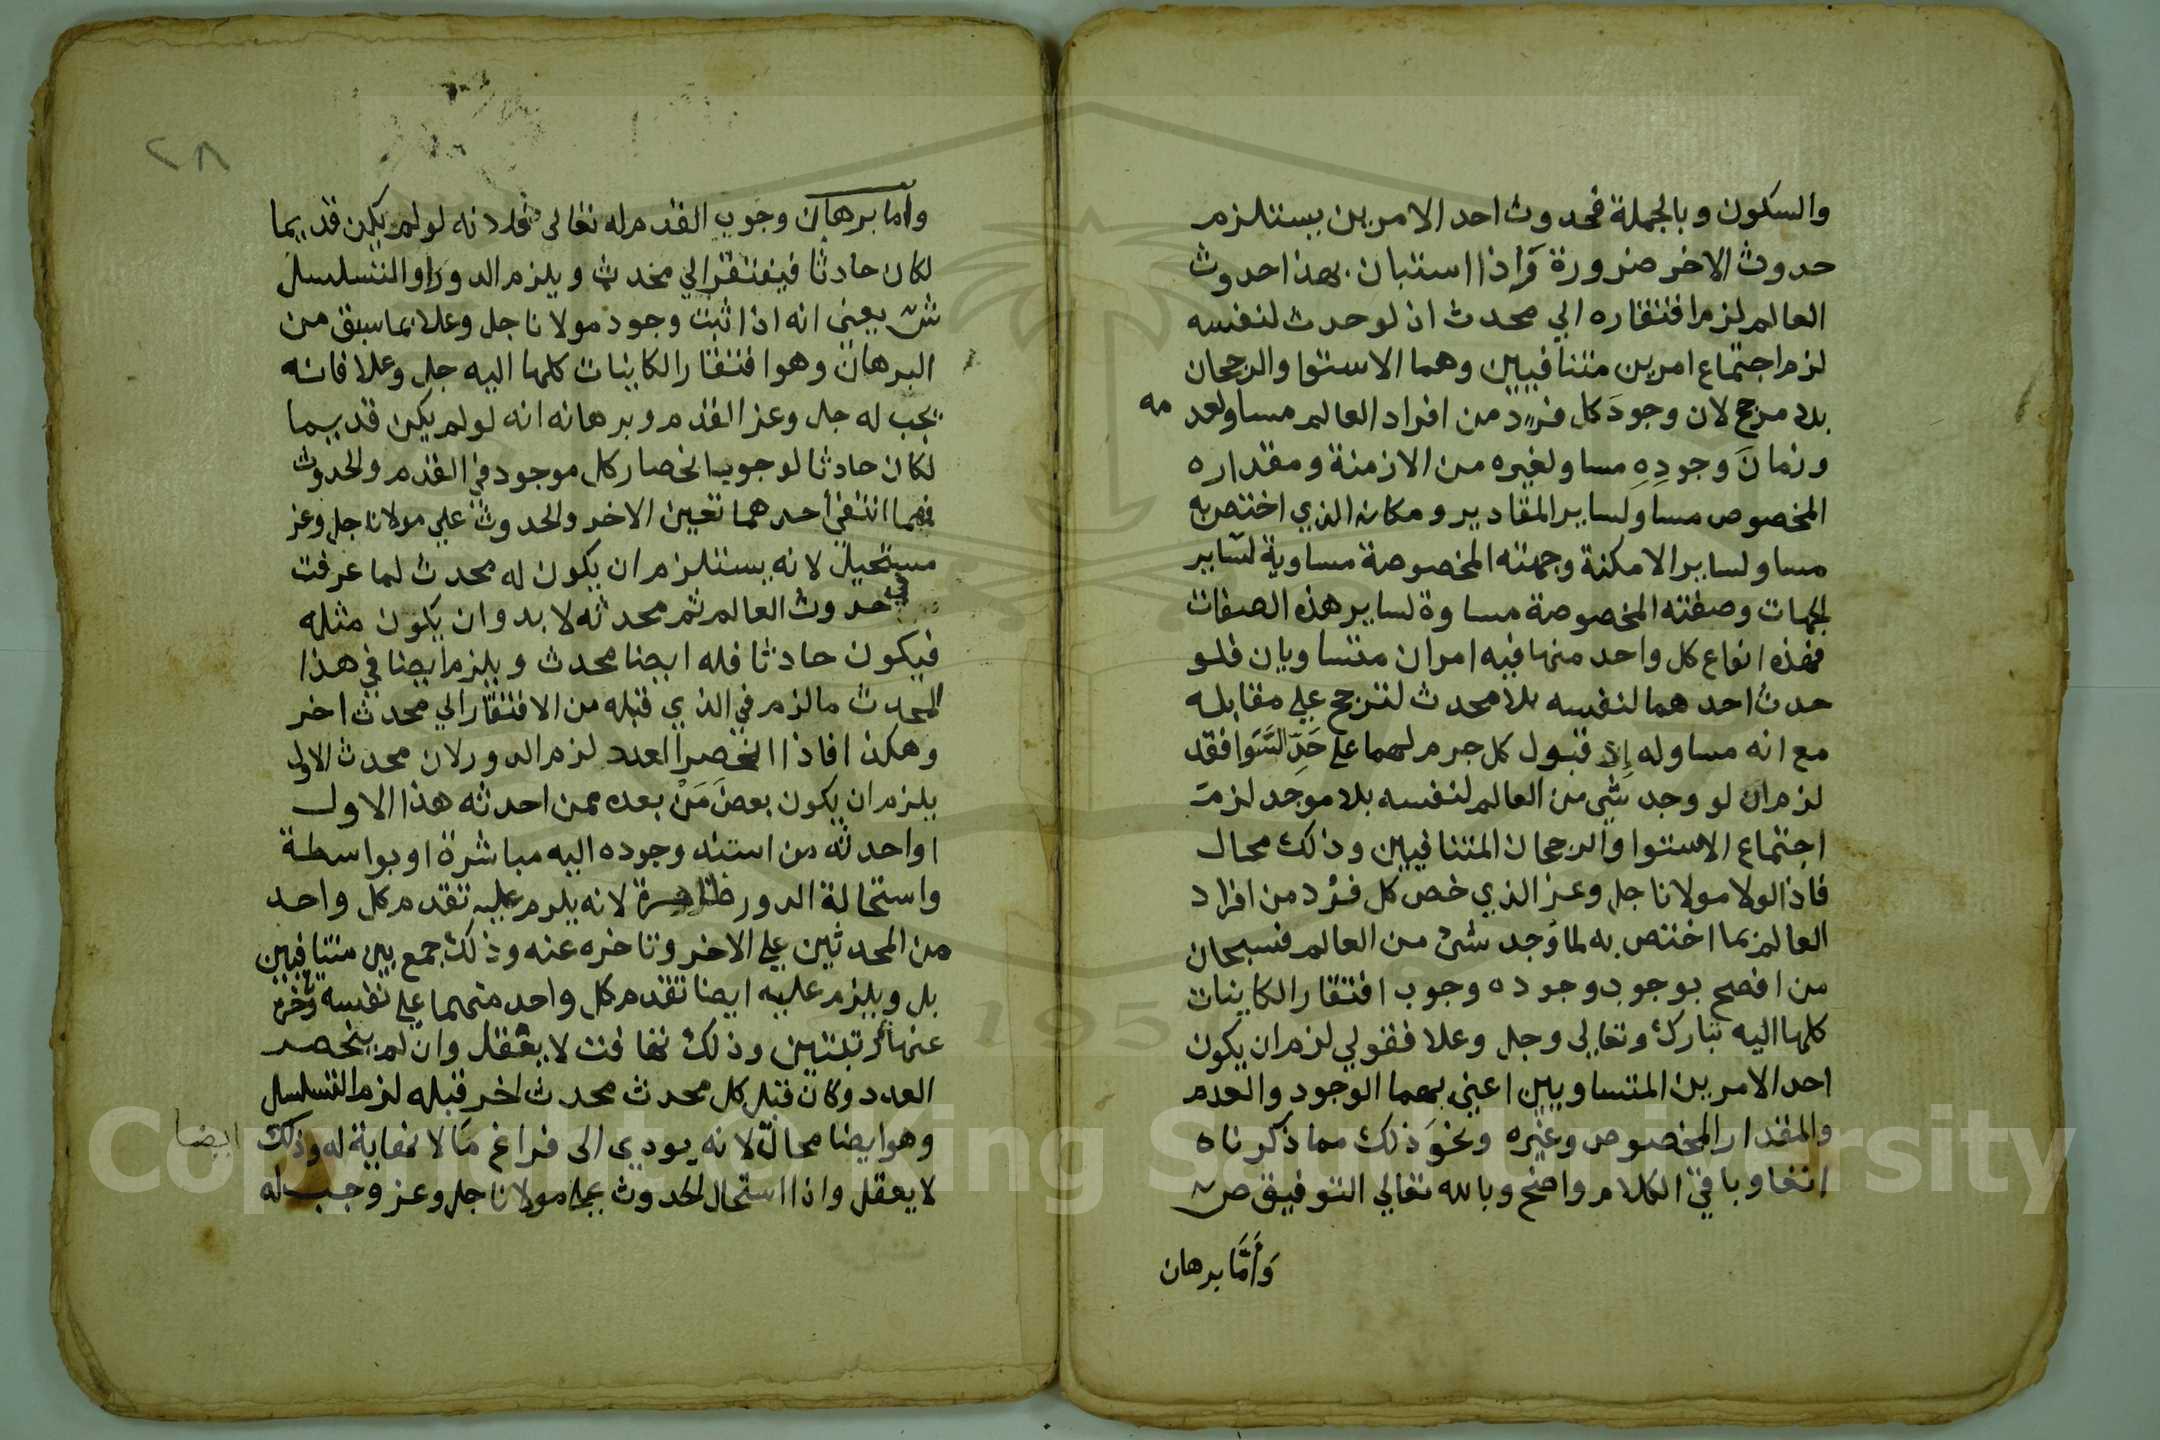 والسكون وبالجملة فحدوث احد الامرين يستلزم
حدوث الاخر ضرورة واذا استبان بهذا حدوث
العالم لزم افتقاره الي محدث اذ لو حدث لنفسه
لزم اجتماع امرين متنافيين وهما الاستوا والرجحان
بلا مرجح لان وجود كل فرد من افراد العالم مساو لعد مه
وزمان وجوده مساو لغيره من الازمنة ومقداره
المخصوص مساو لساير المقادير ومكانه الذي اختص به
مساو لساير الامكنة وجهته المخصوصة مساوية لساير
الجهات وصفته المخصوصة مساوة لساير هذه الصفات
فهذه انواع كل واحد منها فيه امران متساويان فلو
حدث احدهما لنفسه بلا محدث لترجح علي مقابله
مع انه مساو له اذ قبول كل جرم لهما علي حد السوا فقد
لزم ان لو وجد شي من العالم لنفسه بلا موجد لزم
اجتماع الاستوا والرجحان المتنافيين وذلك محال
فاذا لولا مولانا جل وعز الذي خص كل فرد من افراد
العالم بما اختص به لما وجد شئ من العالم فسبحان
من افصح بوجوب وجوده وجوب افتقار الكاينات
كلها اليه تبارك وتعالي وجل وعلا فقولي لزم ان يكون
احد الامرين المتساويين اعني بهما الوجود والعدم
والمقدار المخصوص وغيره ونحو ذلك مما ذكرناه
انفا وباقي الكلام واضح وبالله تعالي التوفيق ص
وأما برهان
٢٨
واما برهان وجوب القدم له تعالى فلانه لو لم يكن قديما
لكان حادثا فيفتقر الي محدث ويلزم الدور او التسلسل
ش يعني انه اذا ثبت وجود مولانا جل وعلا بما سبق من
البرهان وهو افتقار الكاينات كلها اليه جل وعلا فانه
يجب له جل وعز القدم وبرهانه انه لو لم يكن قديما
لكان حادثا لوجوب انحصار كل موجود في القدم والحدوث
فمهما انتفى احدهما تعين الاخر والحدوث علي مولانا جل وعز
مستحيل لانه يستلزم ان يكون له محدث لما عرفت
في حدوث العالم ثم محدثه لا بد وان يكون مثله
فيكون حادثا فله ايضا محدث ويلزم ايضا في هذا
المحدث ما لزم في الذي قبله من الافتقار الي محدث اخر
وهكذا فاذا انحصر العدد لزم الدور لان محدث الاول
يلزم ان يكون بعض من بعده ممن احدثه هذا الاول
او احدثه من استند وجوده اليه مباشرة او بواسطة
واستحالة الدور ظاهرة لانه يلزم عليه تقدم كل واحد
من المحدثين علي الاخر وتاخره عنه وذلك جمع بين متنافيين
بل ويلزم عليه ايضا تقدم كل واحد منهما علي نفسه وتاخره
عنها بمرتبتين وذلك تهافت لا يعقل وان لم ينحصر
العدد وكان قبل كل محدث محدث اخر قبله لزم التسلسل
وهو ايضا محال لانه يودي الى فراغ ما لا نهاية له وذلك ايضا
لا يعقل واذا استحال الحدوث علي مولانا جل وعز وجب له
Copyright © King Saud University
195